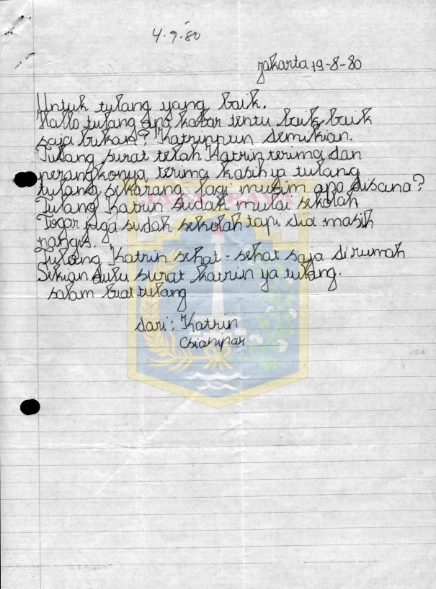 4.9.80
Jakarta 19-8-80
Untuk tulang yang baik.
Hallo tulang apa kabar tentu baik baik
saja bukan? Katrinpun demikian.
Tulang surat telah Katrin terima dan
perangkonya terima kasih ya tulang
tulang sekarang lagi musim apa disana?
Tulang Katrin sudah mulai sekolah
Togar juga sudah sekolah tapi dia masih
nangis.
Tulang Katrin sehat-sehat saja di rumah
Sekian dulu surat katrin ya tulang.
salam buat tulang
dari: Katrin